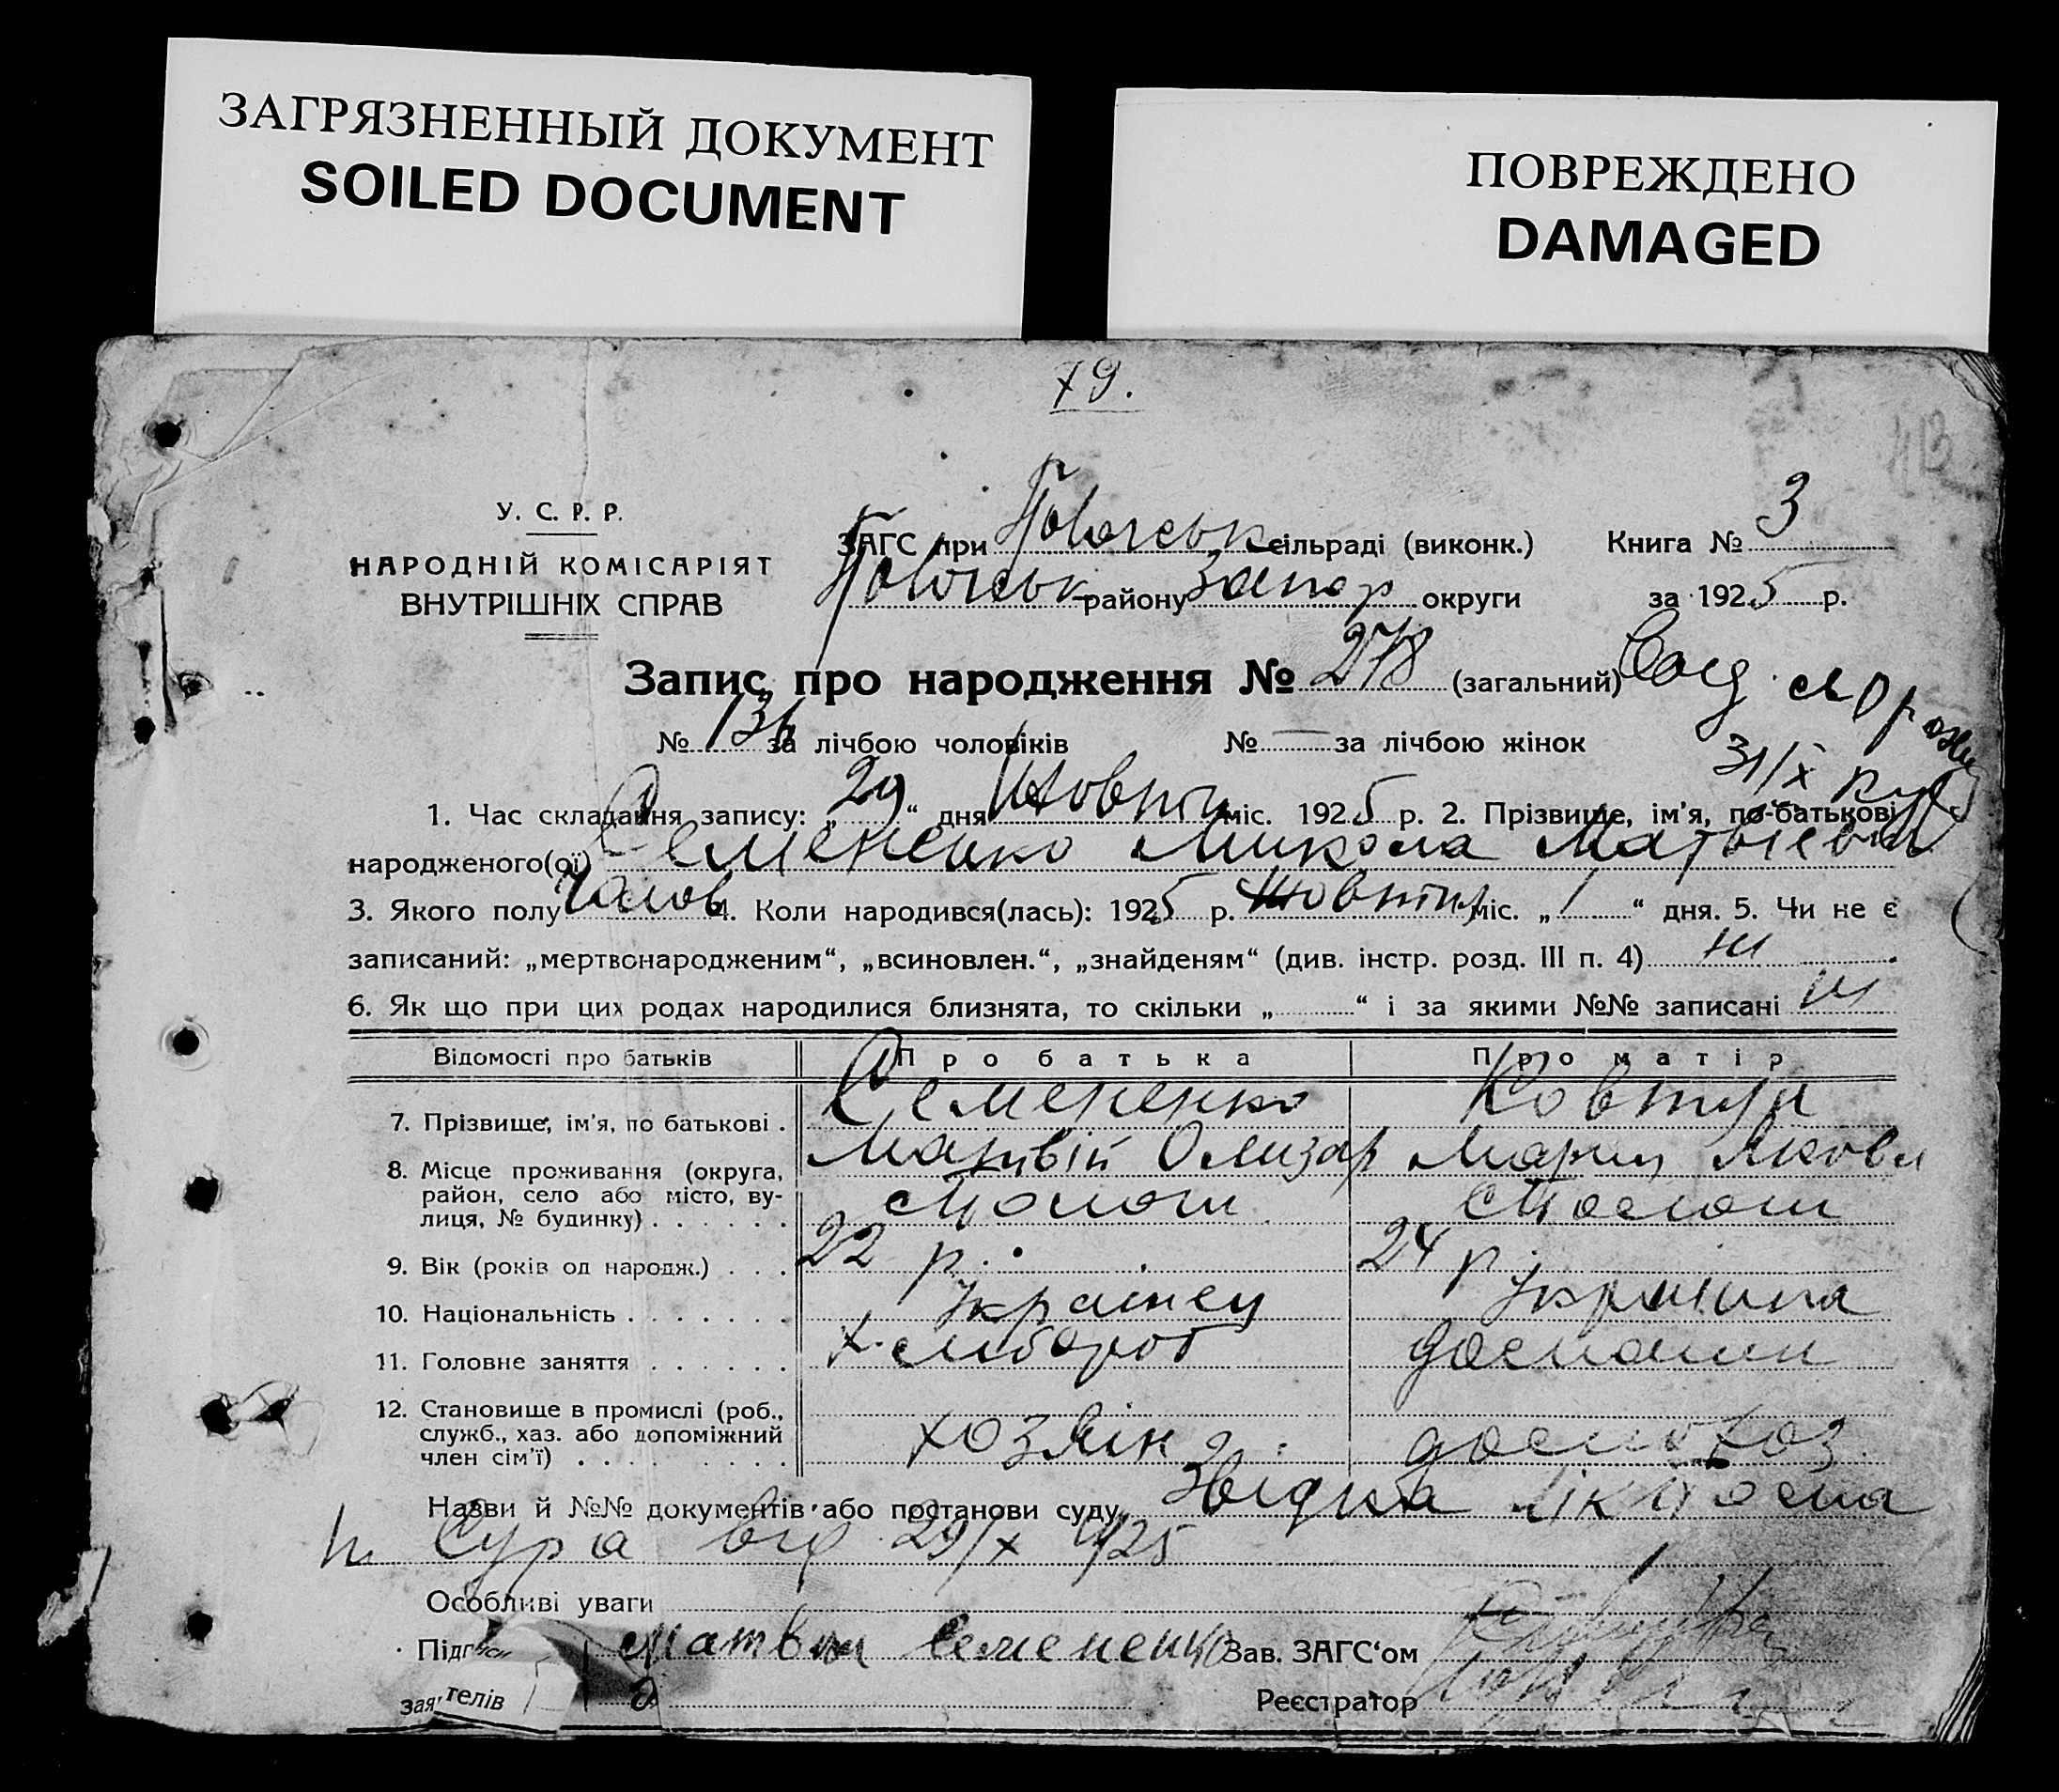 ЗАГРЯЗНЕННЫЙ ДОКУМЕНТ
SOILED DOCUMENT
ПОВРЕЖДЕНО
DAMAGED
79.
У. С. Р. Р.
НАРОДНІЙ КОМІСАРІЯТ
ВНУТРІШНІХ СПРАВ
ЗАГС при сільраді (виконк.) Книга № 3
району Запор округи за 1925 р.
Запис про народження № 278 (загальний)
№ за лічбою чоловіків № — за лічбою жінок
31/X
1. Час складання запису: „29“ дня Жовтн міс. 1925 р. 2. Прізвище, ім'я, по-батькові
народженого(ої) Семененко Микола Матвіевич
3. Якого полу Чолов 4. Коли народився(лась): 1925 р. Жовтня міс. „1“ дня. 5. Чи не є
записаний: „мертвонародженим“, „всиновлен.“, „знайденям“ (див. інстр. розд. III п. 4) ні
6. Як що при цих родах народилися близнята, то скільки „ “ і за якими №№ записані ні
Відомості про батьків Про батька Про матір
7. Прізвище, ім'я, по батькові . Семененко Ковтун
Матвій Олизар Мария Яковл
8. Місце проживання (округа,
район, село або місто, ву-
лиця, № будинку) . . . . . .
9. Вік (років од народж.) . . . 22 р. 24 р.
10. Національність . . . . . . . Українец Українка
11. Головне заняття . . . . . . Хлибороб
12. Становище в промислі (роб.,
служб., хаз. або допоміжний
член сім'ї) . . . . . . . . . хозяін
Назви й №№ документів або постанови суду Звідка
Сура від 29/X 1925
Особливі уваги
Підписи Матвей Семененко Зав. ЗАГС'ом
заятелів Реєстратор